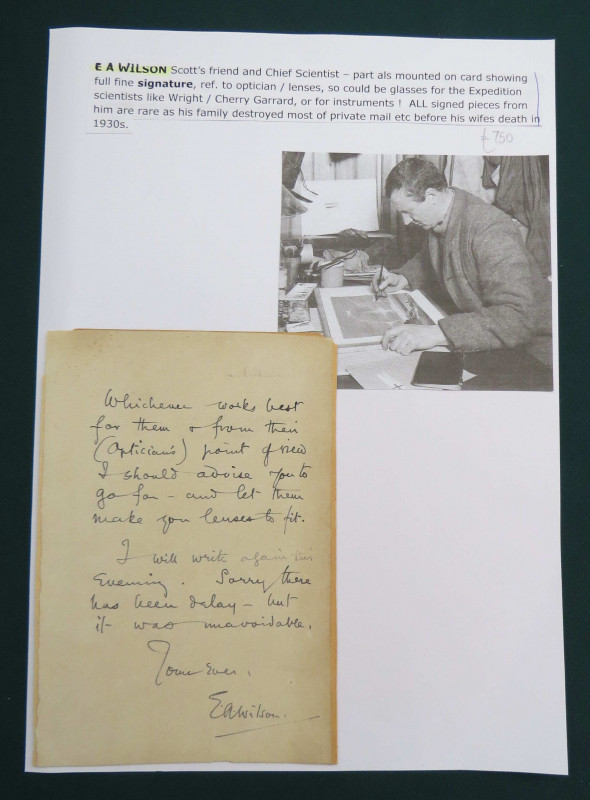 E A WILSON Scott's friend and Chief Scientist – part als mounted on card showing
full fine signature, ref. to optician / lenses, so could be glasses for the Expedition
scientists like Wright / Cherry Garrard, or for instruments ! ALL signed pieces from
him are rare as his family destroyed most of private mail etc before his wifes death in
1930s.
£750
Whichever works best
for them & from their
(Opticians) point of view
I should advise you to
go for – and let them
make you lenses to fit.
I will write again this
evening. Sorry there
has been delay – but
it was unavoidable.
Your ever.
EAWilson.